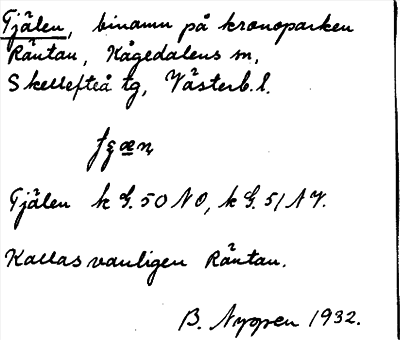 Tjälen, binamn på kronoparken
Räntan, Kågedalens sn,
Skellefteå tg, Västerb. l.
Tjälen k G. 50 NO, k G. 51 NV.
Kallas vanligen Räntan.
B. Nygren 1932.